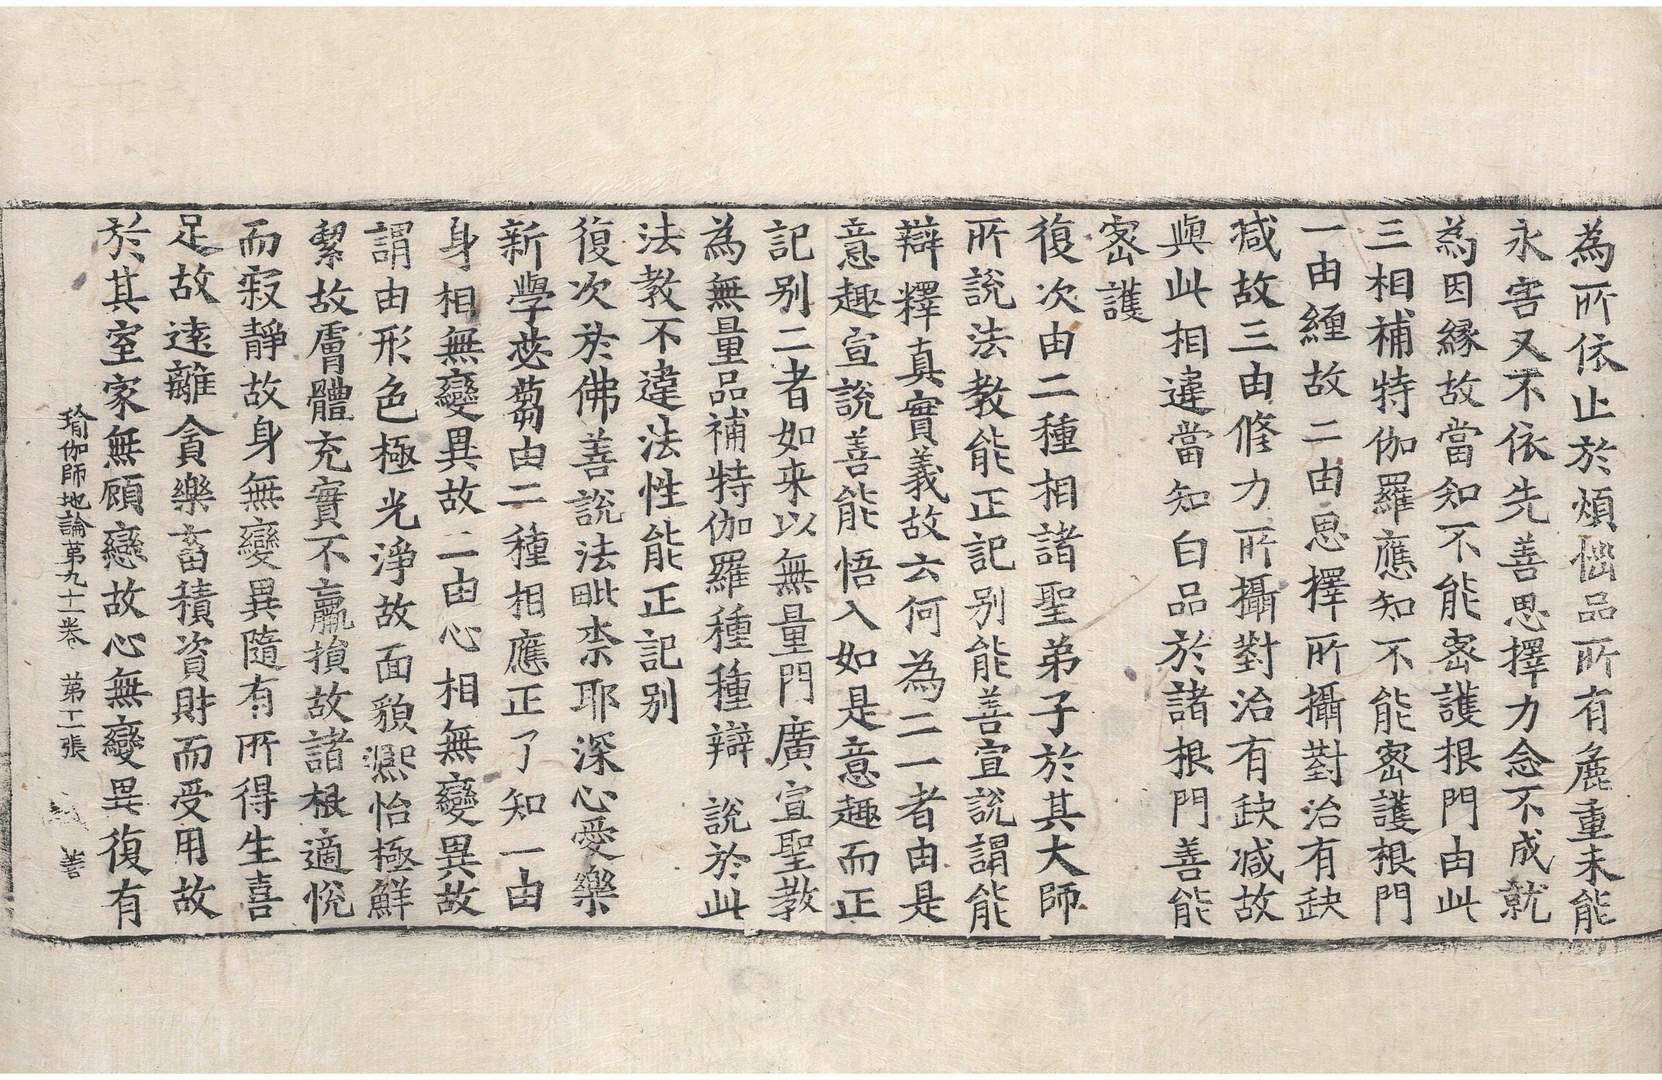 為所依止於煩惱品所有麁重未能
永害又不依先善思擇力念不成就
為因緣故當知不能密護根門由此
三相補特伽羅應知不能密護根門
一由纏故二由思擇所攝對治有缺
減故三由修力所攝對治有缺減故
與此相違當知白品於諸根門善能
密護
復次由二種相諸聖弟子於其大師
所說法教能正記別能善宣說謂能
辯釋真實義故云何為二一者由是
意趣宣說善能悟入如是意趣而正
記別二者如來以無量門廣宣聖教
為無量品補特伽羅種種辯說於此
法教不違法性能正記別
復次於佛善說法毗柰耶深心愛樂
新學苾芻由二種相應正了知一由
身相無變異故二由心相無變異故
謂由形色極光淨故面貌熙怡極鮮
絜故膚體充實不羸損故諸根適悅
而寂靜故身無變異隨有所得生喜
足故遠離貪樂畜積資財而受用故
於其室家無顧戀故心無變異復有
瑜伽師地論第九十一卷 第二張 善